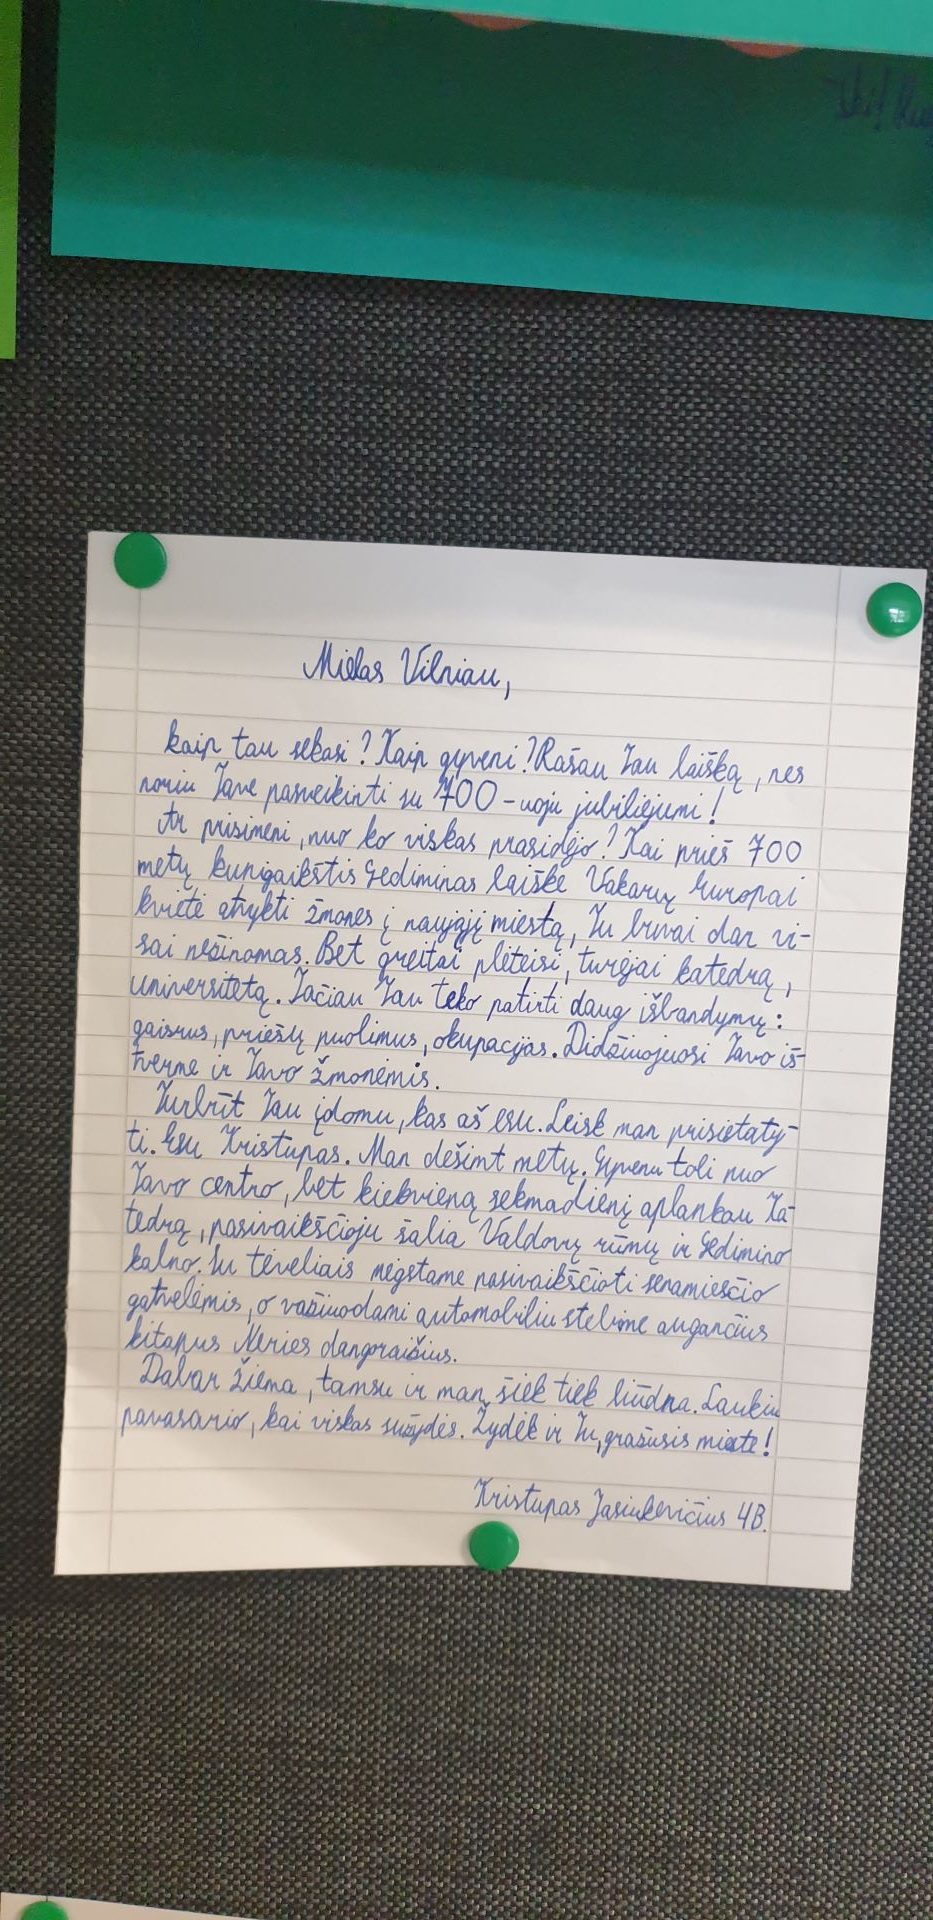 Mielas Vilniau,
kaip tau sekasi? Kaip gyveni? Rašau Tau laišką, nes
noriu Tave pasveikinti su 700-uoju jubiliejumi!
Ar prisimeni, nuo ko viskas prasidėjo? Kai prieš 700
metų kunigaikštis Gediminas laiške Vakarų Europai
kvietė atvykti žmones į naująjį miestą, Tu buvai dar vi-
sai nežinomas. Bet greitai plėteisi, turėjai katedrą,
universitetą. Tačiau Tau teko patirti daug išbandymų:
gaisrus, priešų puolimus, okupacijas. Didžiuojuosi Tavo iš-
tverme ir Tavo žmonėmis.
Turbūt Tau įdomu, kas aš esu. Leisk man prisistaty-
ti. Esu Kristupas. Man dešimt metų. Gyvenu toli nuo
Tavo centro, bet kiekvieną sekmadienį aplankau Ka-
tedrą, pasivaikščioju šalia Valdovų rūmų ir Gedimino
kalno. Su tėveliais mėgstame pasivaikščioti senamiesčio
gatvelėmis, o važiuodami automobiliu stebime augančius
kitapus Neries dangoraižius.
Dabar žiema, tamsu ir man šiek tiek liūdna. Laukiu
pavasario, kai viskas sužydės. Žydėk ir Tu, gražusis mieste!
Kristupas Jasiukevičius 4B.